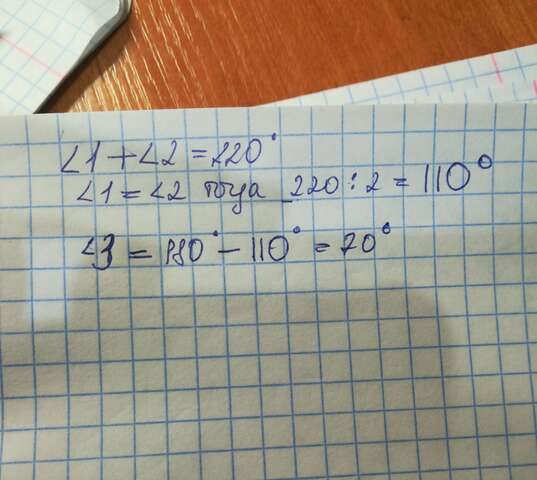 ∠1+∠2=220°
∠1=∠2 тогда 220:2=110°
∠3=180°-110°=70°